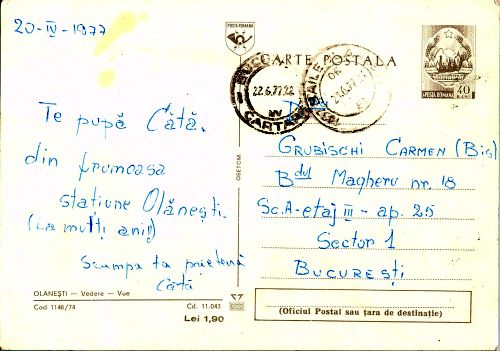 20-IV-1977
POSTA ROMANA
CARTE POSTALA
22.6.77.22
CARTARE
POSTA ROMANA 40
Te pupă Cătă.
din frumoasa
stațiune Olănești.
(La mulți ani!)
Scumpa ta prietenă
Cătă
GRUBISCHI CARMEN (Bis)
Bdul Magheru nr. 18
Sc.A-etaj III - ap. 25
Sector 1
BUCUREști
OLANEȘTI — Vedere — Vue
Cod 1146/74
Cd. 11.043
Lei 1,90
(Oficiul Postal sau țara de destinație)